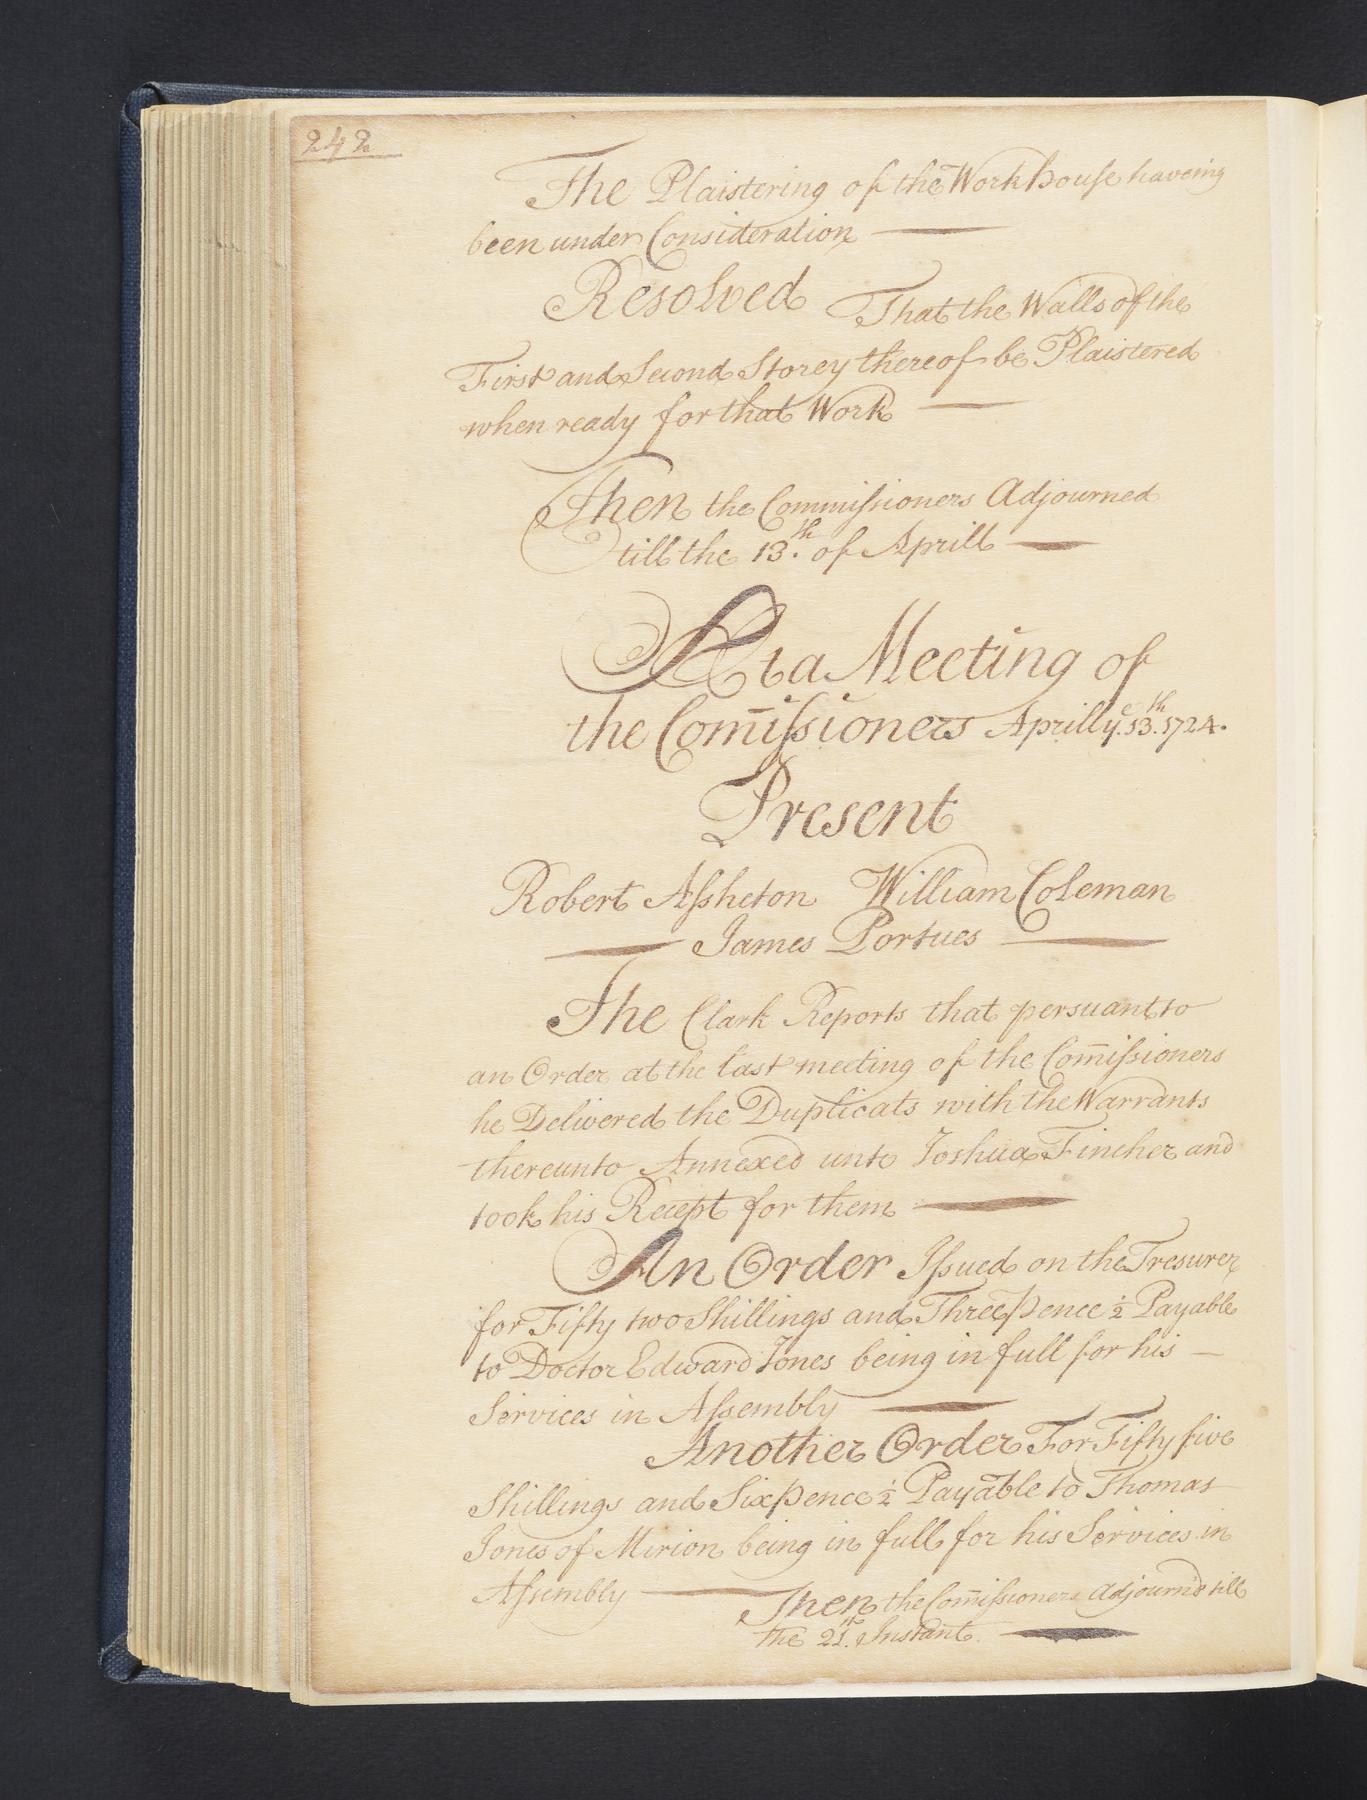 242
The Plaistering of the Workhouse haveing
been under Consideration
Resolved That the Walls of the
First and Second Storey thereof be Plaistered
when ready for that Work
Then the Commissioners Adjourned
till the 13.th of Aprill
At a Meeting of
the Com̄issioners Aprill y.e 13.th 1724.
Present
Robert Assheton William Coleman
James Portues
The Clark Reports that persuant to
an Order at the last meeting of the Com̄issioners
he Delivered the Duplicats with the Warrants
thereunto Annexed unto Joshua Fincher and
took his Recept for them
An Order Issued on the Tresurer
for Fifty two Shillings and Three pence ½ Payable
to Doctor Edward Jones being in full for his
Services in Assembly
Another Order For Fifty five
Shillings and Six pence ½ Payable to Thomas
Jones of Mirion being in full for his Services in
Assembly
Then the Com̄issioners Adjourn'd till
the 21.st Instant